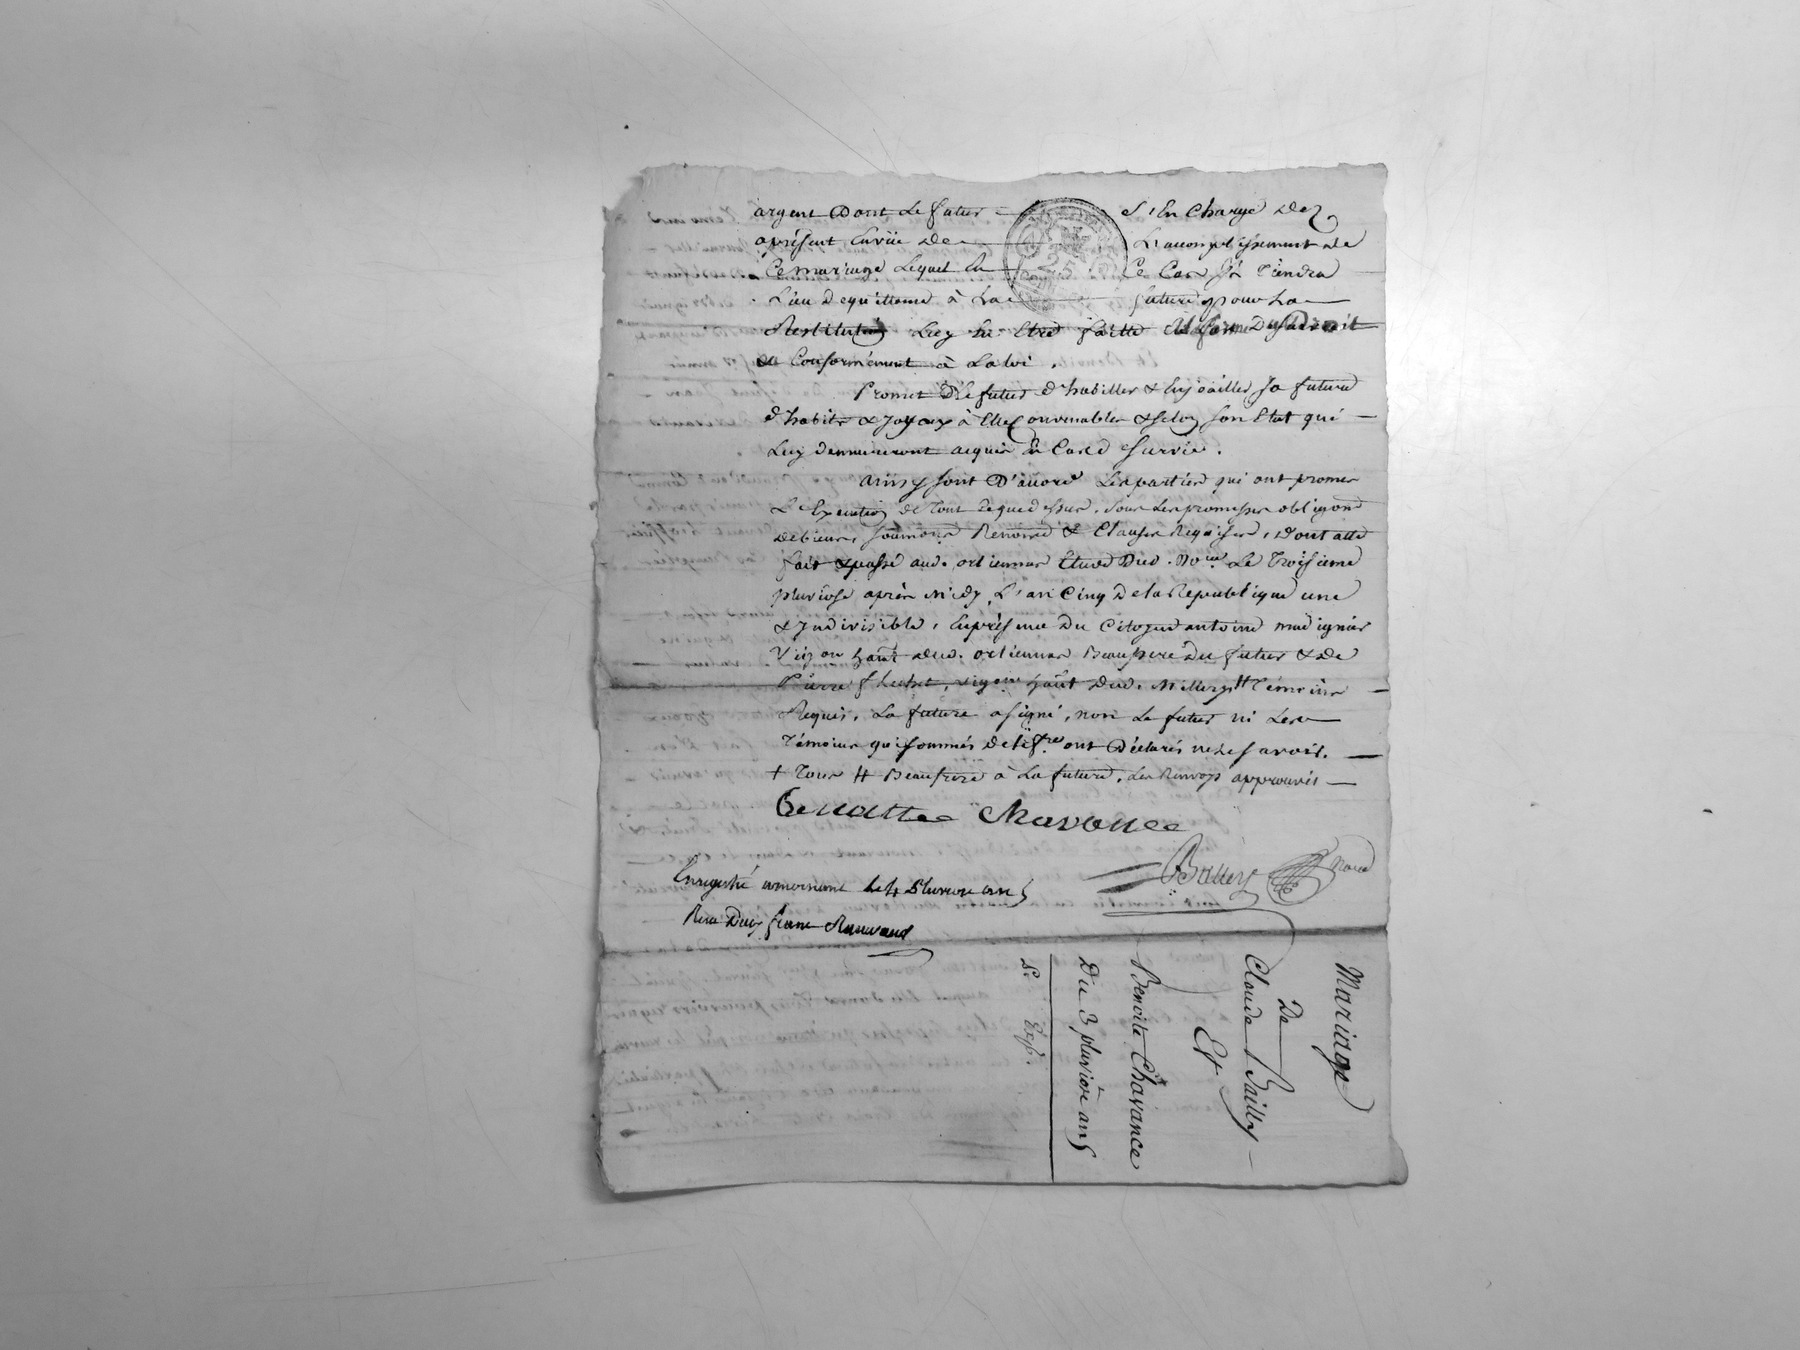 argent Dont Le futur s'En Charge Dez
aprésent Envüe de L'accomplissement de
Ce mariage Lequel En Ce Cas Là Tiendra
Lieu dequittance à La future pour La
Restitution Luy En Etre faitte Du Droit
& Conformément à La loi.
Promet Le futur d'habiller & Enjoäiller sa future
d'habits & Joyaux à Elle Convenables & selon son Etat qui
Luy demeureront acquis En Cas de survie.
ainsy sont D'accord Les parties qui ont promis
L'Execution de Tout Ce que dessus, sous Les promesses obligons
de biens, soumons Renonons & Clauses Requises, dont acte
fait & passé aud. orlienas Etude Dud. No.re Le Troisieme
pluviose après Midy L'an Cinq de la Republique une
& Indivisible, En présence Du Citoyen antoine
V'ig.on hant dud. orlienas Beaufrere Du futur & de
Pierre vigon hant Dud. Millery H Témoins
Requis, La future a signé, non Le futur ni Les
Témoins qui sommés de le f.re ont Déclarés ne le savoir.
+ Tous H Beaufrere à La future, Les Renvoys approuvés
Benoitte Chavance
Bailley No.re
Enregistré a mornant le 4 Pluviose an 5
Reçu Deux franc
Mariage
De
Claude Bailly
Et
Benoite Chavance
Du 3 pluviôse an 5
Exp.
25